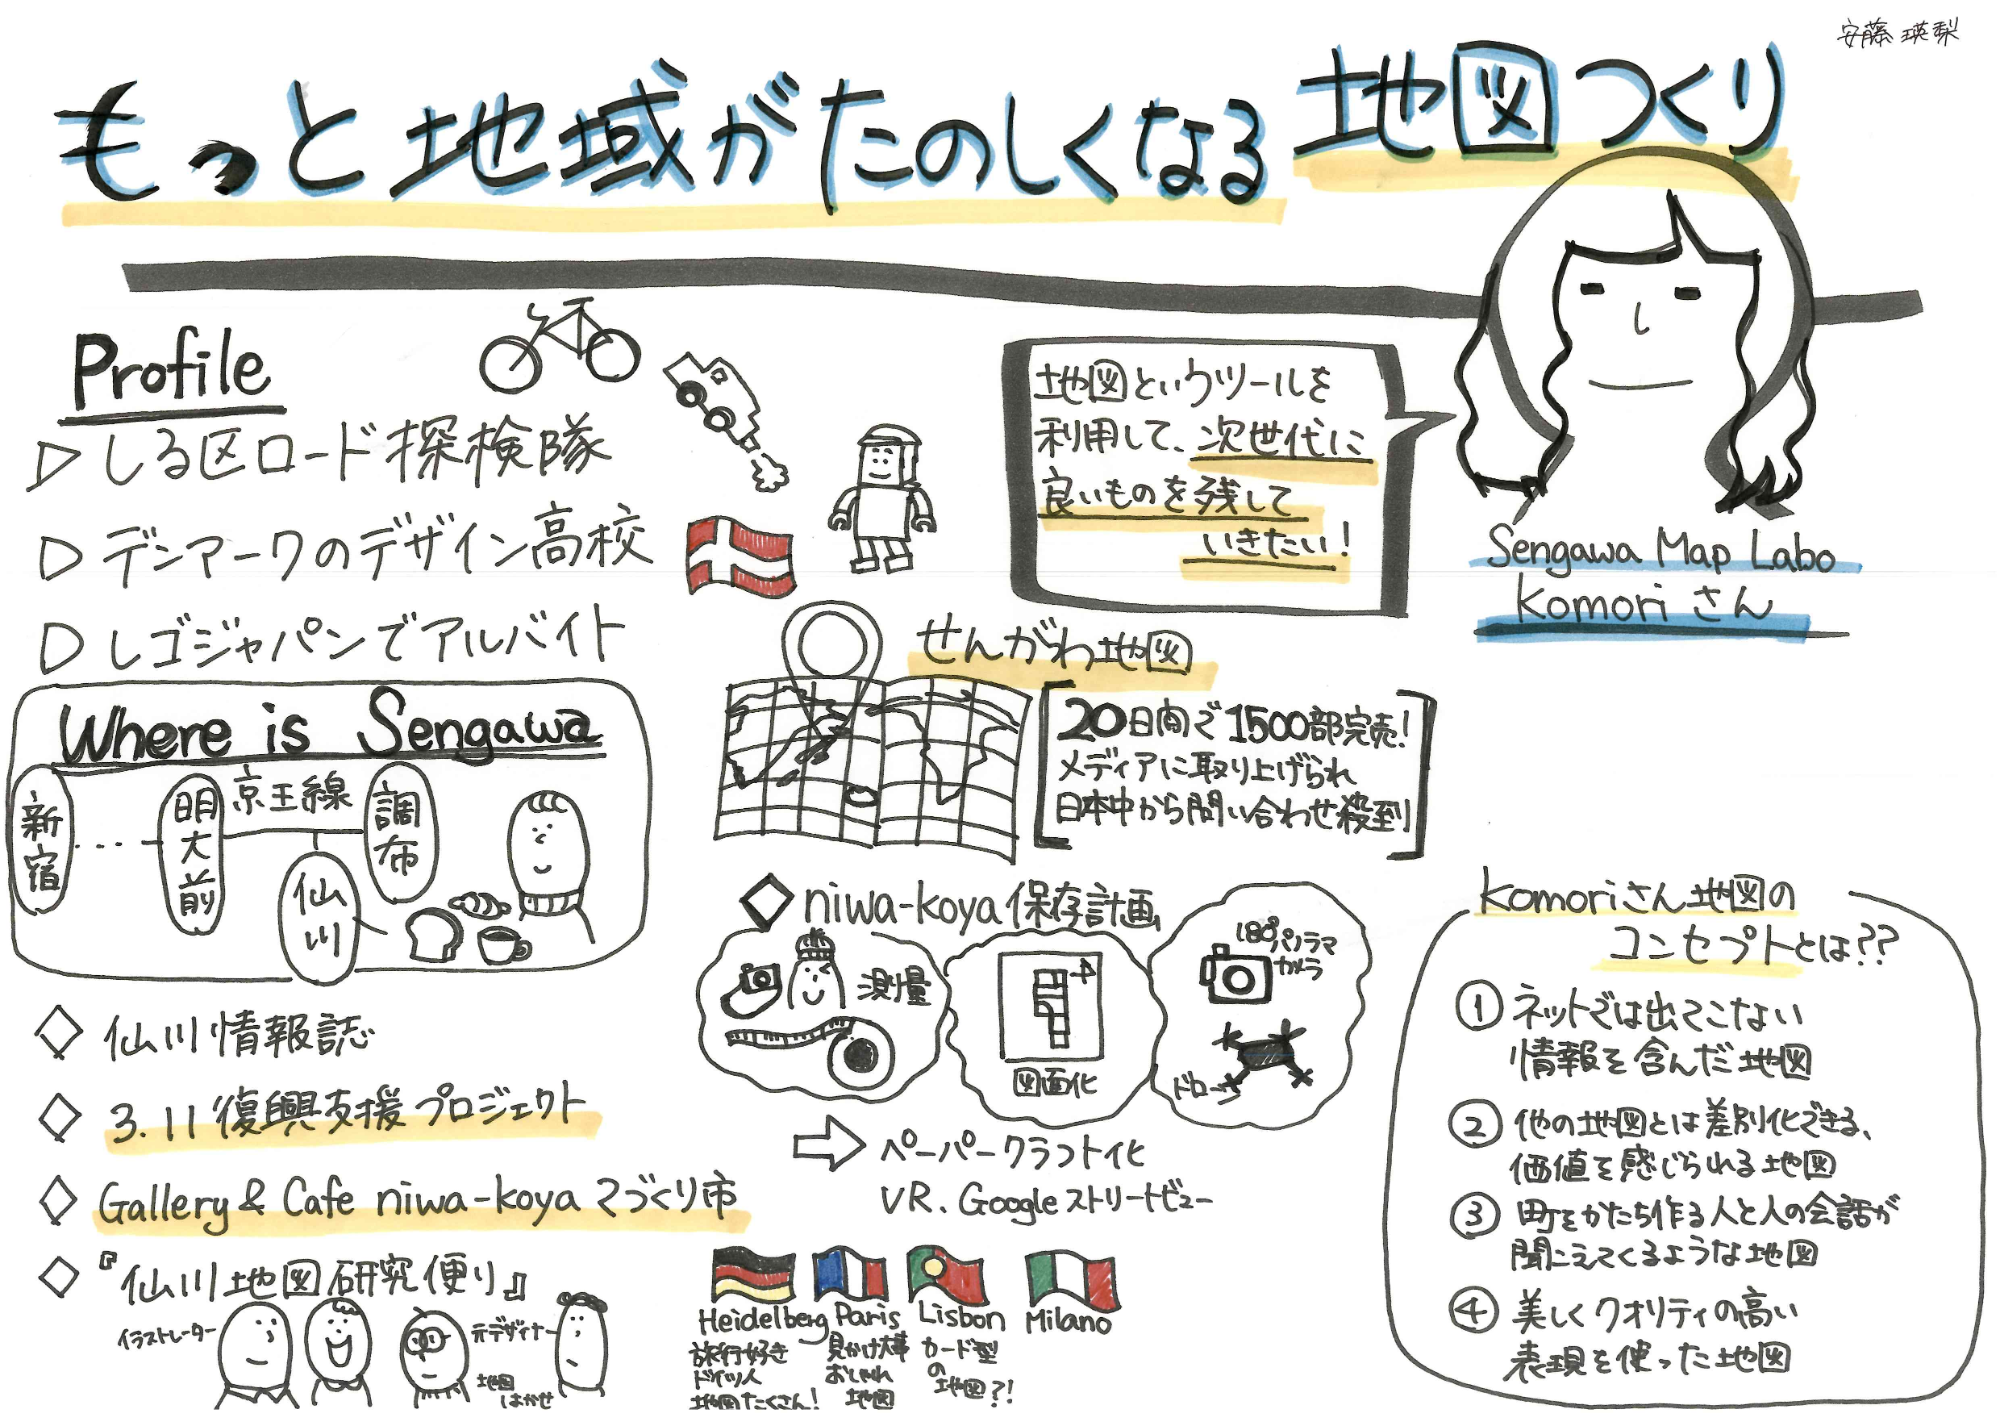 安藤 瑛梨
もっと地域がたのしくなる地図つくり
Profile
▷ しる区ロード探検隊
▷ デンマークのデザイン高校
▷ レゴジャパンでアルバイト
地図というツールを
利用して、次世代に
良いものを残して
いきたい!
Sengawa Map Labo
Komoriさん
Where is Sengawa
新宿
明大前
京王線
調布
仙川
せんがわ地図
20日間で1500部完売!
メディアに取り上げられ
日本中から問い合わせ殺到
◇ 仙川情報誌
◇ 3.11復興支援プロジェクト
◇ Gallery & Cafe niwa-koya てづくり市
◇ 『仙川地図研究便り』
イラストレーター
元デザイナー
地図
はかせ
◇ niwa-koya保存計画
測量
図面化
180°パノラマ
カメラ
ドローン
⇨ ペーパークラフト化
VR. Googleストリートビュー
Heidelberg
旅行好き
ドイツ人
地図たくさん!
Paris
見かけ大事
おしゃれ
地図
Lisbon
カード型
の
地図?!
Milano
Komoriさん地図の
コンセプトとは??
① ネットでは出てこない
情報を含んだ地図
② 他の地図とは差別化できる、
価値を感じられる地図
③ 町をかたち作る人と人の会話が
聞こえてくるような地図
④ 美しくクオリティの高い
表現を使った地図